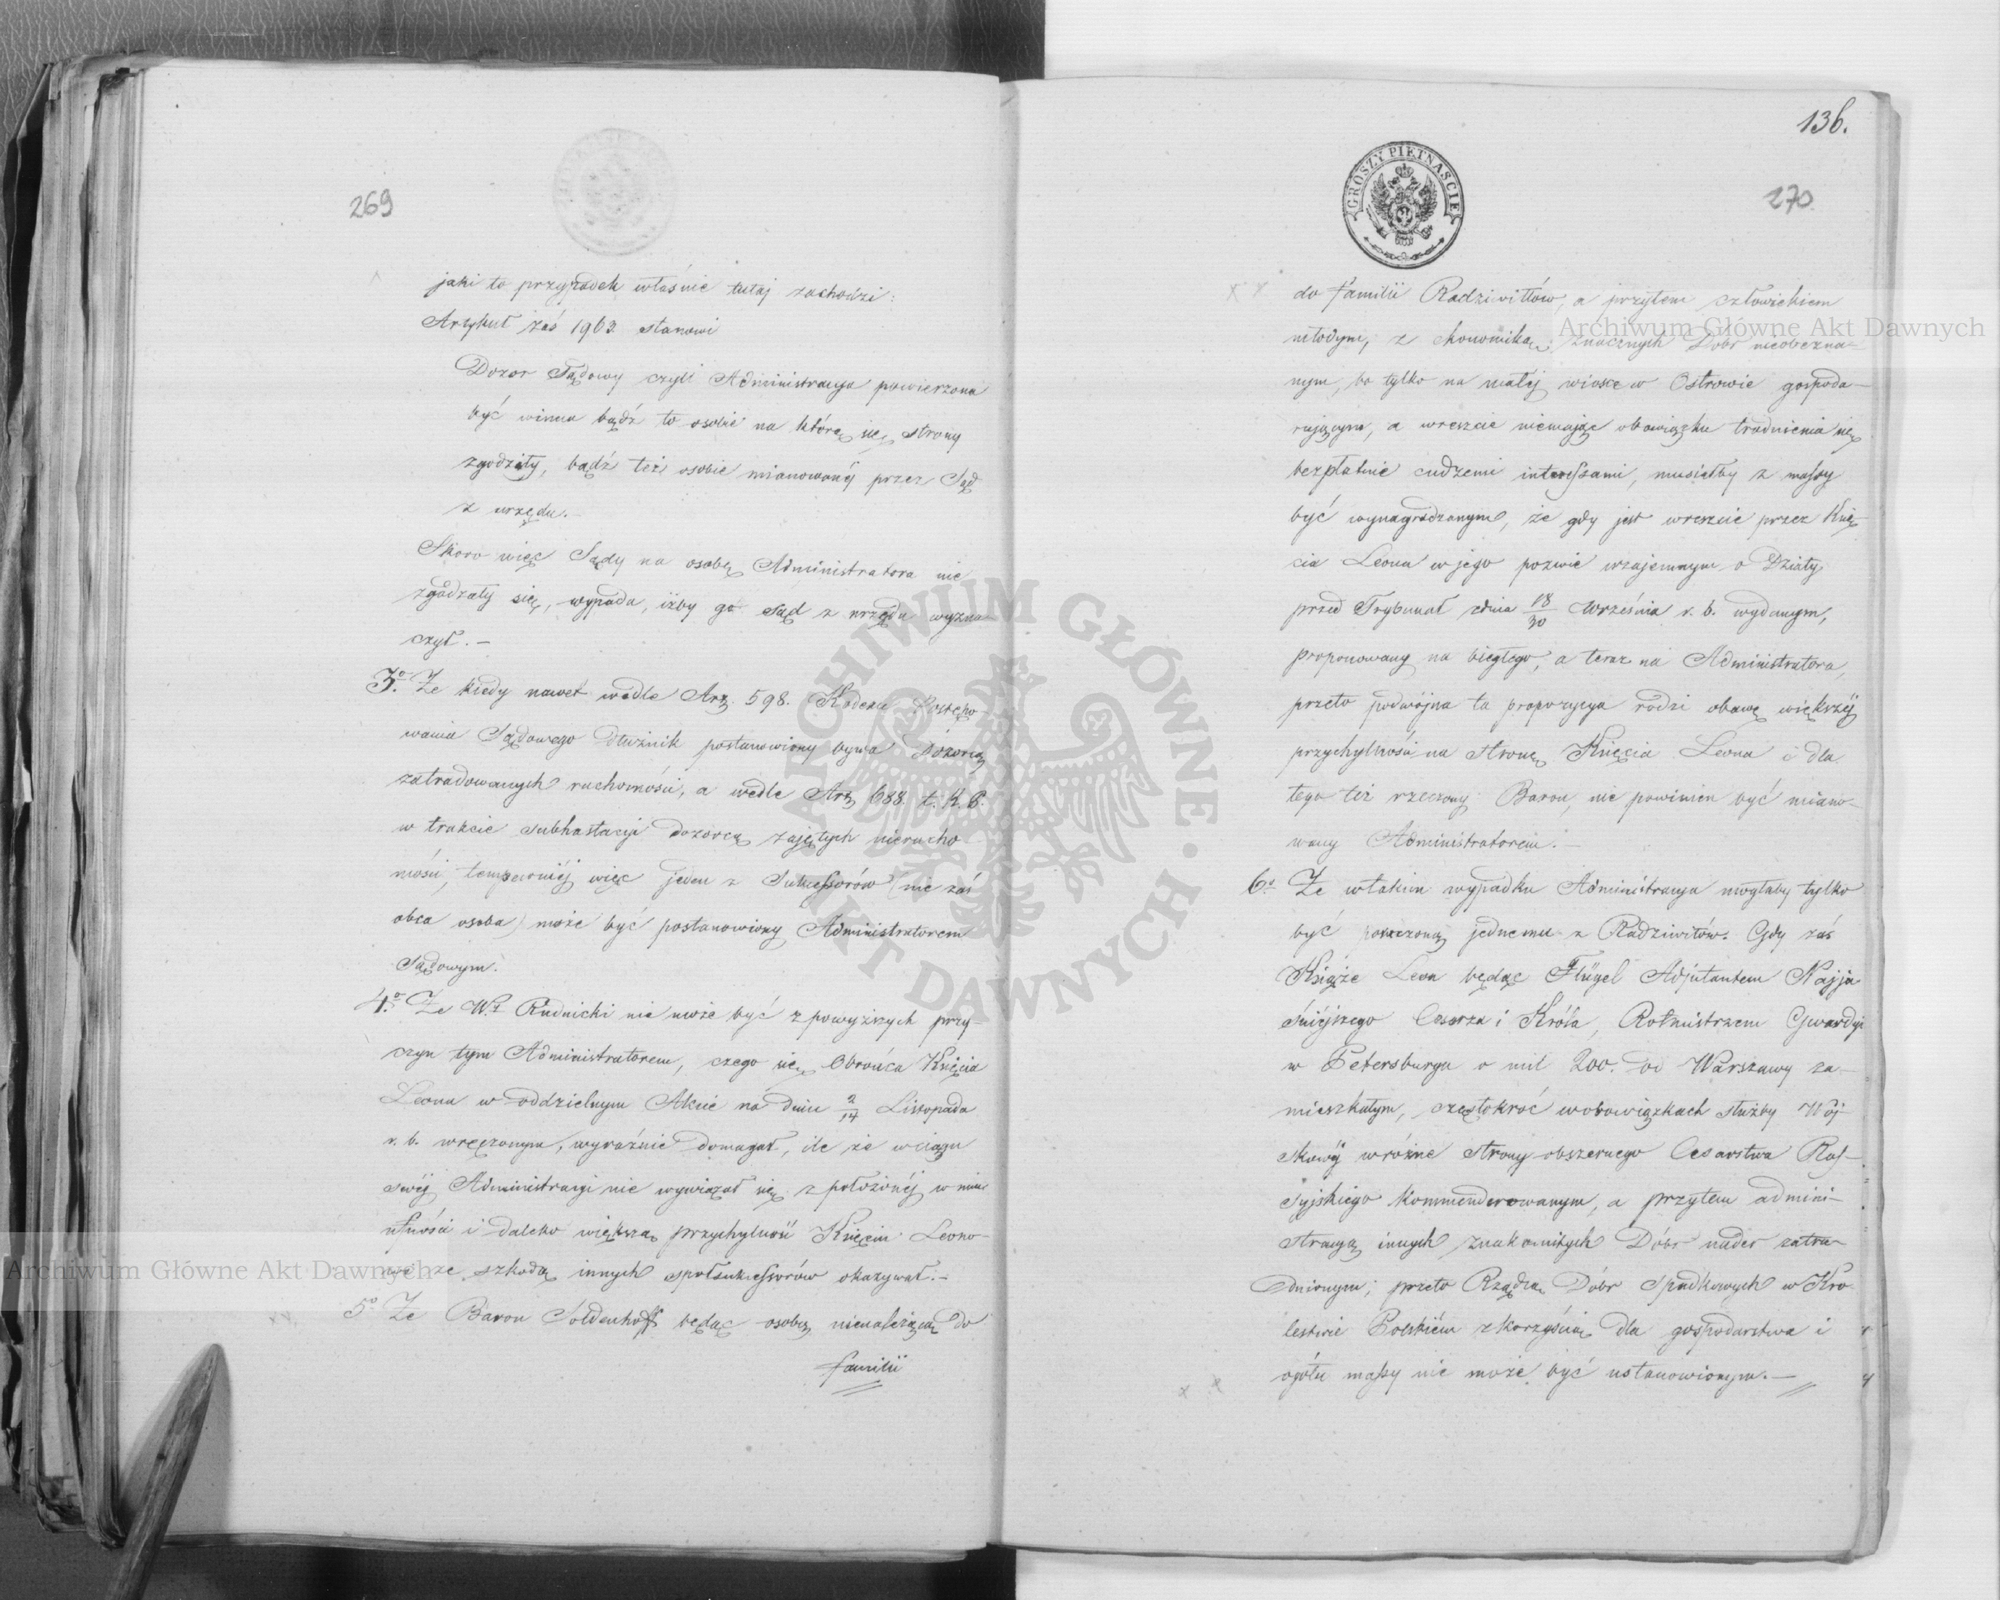 269
jaki to przypadek właśnie tutaj zachodzi:
Artykuł zaś 1963 stanowi
Dozor Sądowy czyli Administracya powierzona
być winna bądź to osobie na którą się strony
zgodziły, bądź też osobie mianowanéj przez Sąd
z urzędu. —
Skoro więc Sądy na osobę Administratora nie
zgodzały się, wypada, iżby go Sąd z urzędu wyzna-
czył. —
3o. Że kiedy nawet wedle Art. 598. Kodexu Postępo-
wania Sądowego Dłużnik postanowiony bywa Dozorcą
zatradowanych ruchomości, a wedle Art. 688. t. K. P.
w trakcie subhastacyi dozorcą zajętych nierucho
mości, tempewniéj więc jeden z Sukcessorów (nie zaś
obca osoba) może być postanowiony Administratorem
Sądowym.
4o. Że Wł Rudnicki nie może być z powyższych przy-
czyn tym Administratorem, czego się Obrońca Księcia
Leona w oddzielnym Akcie na dniu 2/14 Listopada
r. b. wręczonym, wyraźnie domagał, ile że w ciągu
swéj Administracyi nie wywiązał się z położonéj w nim
ufności i daleko większą przychylność Księciu Leono-
wi ze szkodą innych spółsukcessorów okazywał. —
5o Że Baron Soldenhoff będąc osobą nienależącą do
familii
136.
270
GROSZY PIĘTNAŚCIE
do familii Radziwiłłów, a przytem człowiekiem
młodym, z ekonomiką znacznych Dóbr nieobezna-
nym, bo tylko na małéj wiosce w Ostrowie gospoda-
rującym, a wreszcie niemając obowiązku trudnienia się
bezpłatnie cudzemi interessami, musiałby z massy
być wynagrodzonym, że gdy jest wreszcie przez Księ-
cia Leona w jego pozwie wzajemnym o Działy
przed Trybunał z dnia 18/30 Września r. b. wydanym,
proponowany na biegłego, a teraz na Administratora,
przeto podwójna ta propozycya rodzi obawę większéj
przychylności na stronę Księcia Leona i dla
tego też rzeczony Baron, nie powinien być miano-
wany Administratorem. —
6o Że w takim wypadku Administracya mogłaby tylko
być poruczoną jednemu z Radziwiłłów. Gdy zaś
Książe Leon będąc Flügel Adjutantem Najja
śniéjszego Cesarza i Króla, Rotmistrzem Gwardyi
w Petersburgu o mil 200. od Warszawy za-
mieszkałym, częstokroć w obowiązkach służby Woj-
skowéj w różne strony obszernego Cesarstwa Ros-
syjskiego kommenderowanym, a przytem admini-
stracyą innych znakomitych Dóbr nader zatru-
dnionym; przeto Rządcą Dóbr Spadkowych w Kró
lestwie Polskiém z korzyścią dla gospodarstwa i
ogółu massy nie może być ustanowionym. —
Archiwum Główne Akt Dawnych
Archiwum Główne Akt Dawnych
ARCHIWUM GŁÓWNE · AKT DAWNYCH ·